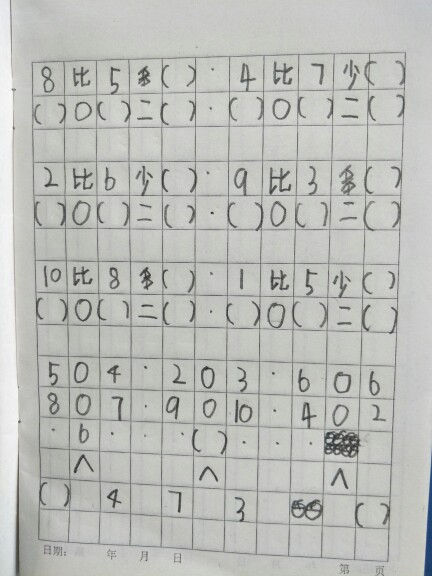 8比5多( )·4比7少( )
( )○( )=( )·( )○( )=( )
2比6少( )·9比3多( )
( )○( )=( )·( )○( )=( )
10比8多( )·1比5少( )
( )○( )=( )·( )○( )=( )
5○4·2○3·6○6
8○7·9○10·4○2
·6···( )···
∧ ∧ ∧
( ) 4 7 3 ( )
日期: 年 月 日 第 页